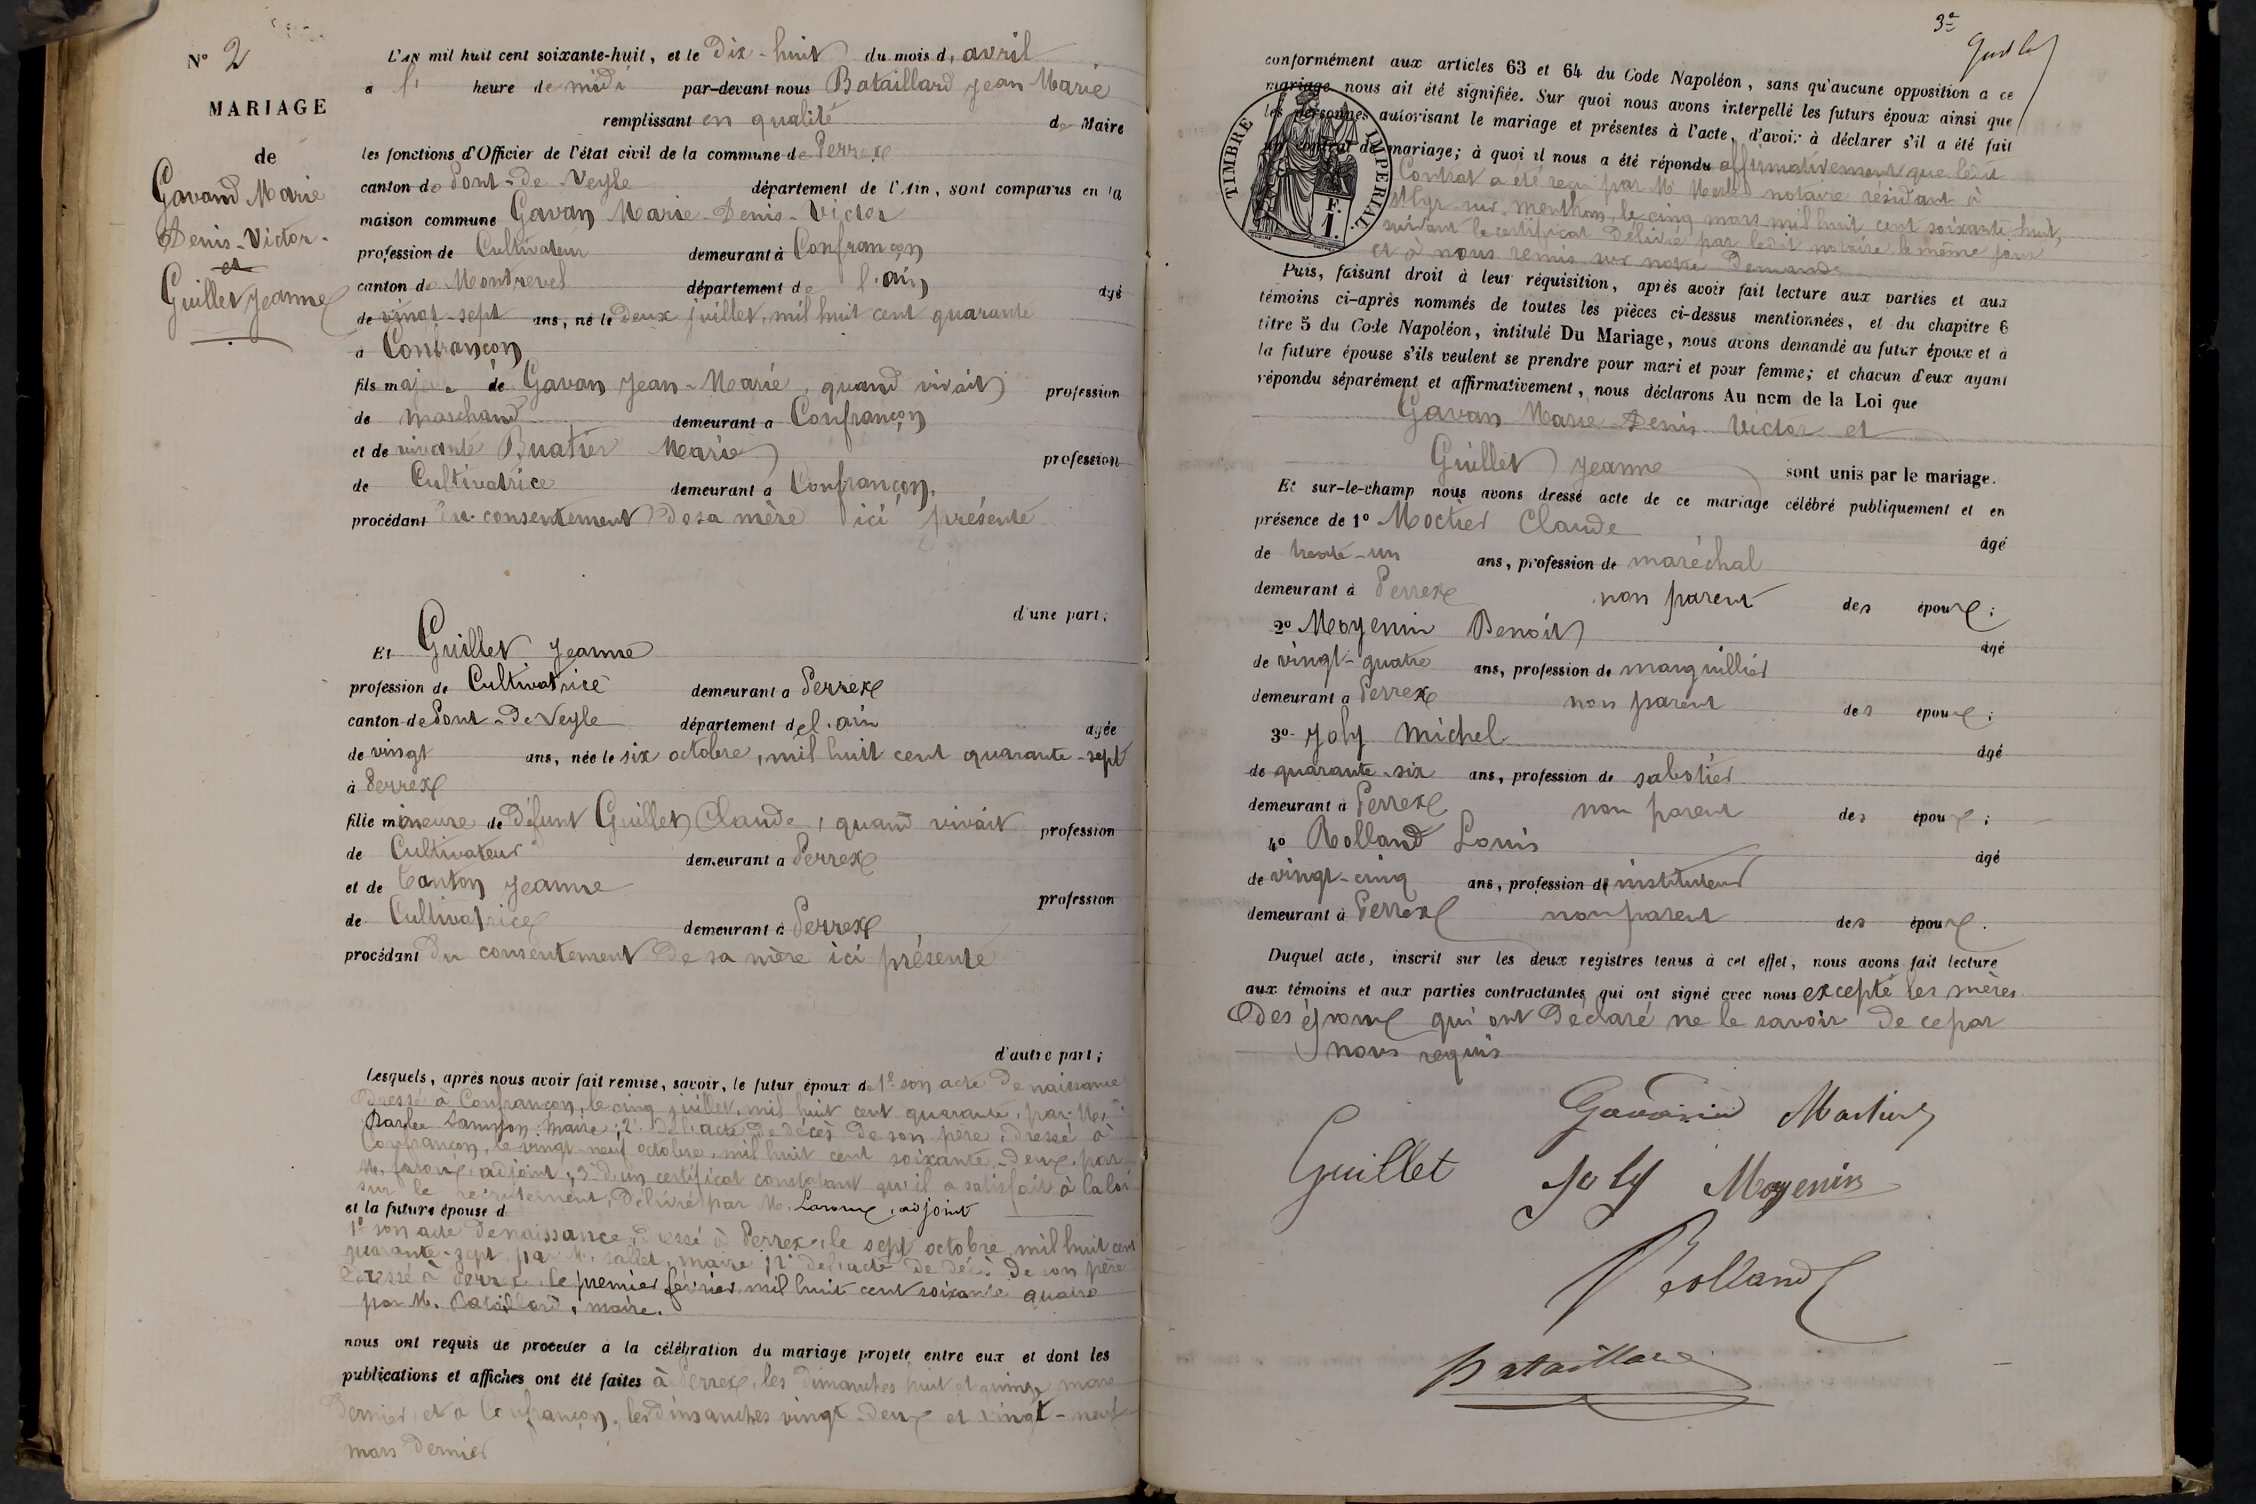 N° 2
MARIAGE
de
Gavand Marie
Denis-Victor-
et
Guillet Jeanne
L'an mil huit cent soixante-huit, et le Dix-huit du mois d'avril
a heure de midi par-devant nous Bataillard Jean Marie
remplissant en qualité de Maire
les fonctions d'Officier de l'état civil de la commune de Perrex
canton de Pont-de-Veyle département de l'Ain, sont comparus en la
maison commune Gavan Marie-Denis-Victor
profession de Cultivateur demeurant à Confrançon
canton de Montrevel département de l'ain agé
de vingt-sept ans, né le deux juillet, mil huit cent quarante
a Confrançon
fils majeur de Gavan Jean-Marie, quand vivait profession
de marchand demeurant a Confrançon
et de vivante Buatier Marie profession
de Cultivatrice demeurant a Confrançon.
procédant du consentement de sa mère ici présente
d'une part;
Et Guillet Jeanne
profession de Cultivatrice demeurant a Perrex
canton de Pont-de-Veyle département de l'ain agée
de vingt ans, née le six octobre, mil huit cent quarante-sept
à Perrex
fille mineure de défunt Guillet Claude, quand vivait profession
de Cultivateur demeurant a Perrex
et de Canton Jeanne profession
de Cultivatrice demeurant à Perrex
procédant du consentement de sa mère ici présente
d'autre part;
Lesquels, après nous avoir fait remise, savoir, le futur époux de 1° son acte de naissance
dressé à Confrançon, le cinq juillet, mil huit cent quarante, par M.
maire; 2° de l'acte de décès de son père, dressé à
Confrançon, le vingt-neuf octobre, mil huit cent soixante-deux, par
M. adjoint; 3° d'un certificat constatant qu'il a satisfait à la loi
sur le recrutement, délivré par M. adjoint
et la future épouse d
1° son acte de naissance, dressé à Perrex, le sept octobre, mil huit cent
quarante-sept, par M. maire; 2° de l'acte de décès de son père
dressé à Perrex, le premier février, mil huit cent soixante quatre
par M. Bataillard, maire.
nous ont requis de proceder à la célébration du mariage projeté entre eux et dont les
publications et affiches ont été faites à Perrex, les dimanches huit et quinze mars
dernier, et à Confrançon, les dimanches vingt-deux et vingt-neuf
mars dernier
3e
conformément aux articles 63 et 64 du Code Napoléon, sans qu'aucune opposition a ce
mariage nous ait été signifiée. Sur quoi nous avons interpellé les futurs époux ainsi que
les personnes autorisant le mariage et présentes à l'acte, d'avoir à déclarer s'il a été fait
un contrat de mariage; à quoi il nous a été répondu affirmativement que ledit
Contrat a été reçu par M. notaire résidant à
St Cyr-sur-Menthon, le cinq mars, mil huit cent soixante-huit,
suivant le certificat délivré par ledit notaire le même jour
et à nous remis sur notre demande
TIMBRE IMPERIAL.
1 F.
Puis, faisant droit à leur réquisition, après avoir fait lecture aux parties et aux
témoins ci-après nommés de toutes les pièces ci-dessus mentionnées, et du chapitre 6
titre 5 du Code Napoléon, intitulé Du Mariage, nous avons demandé au futur époux et à
la future épouse s'ils veulent se prendre pour mari et pour femme; et chacun d'eux ayant
répondu séparément et affirmativement, nous déclarons Au nom de la Loi que
Gavan Marie Denis Victor et
Guillet Jeanne sont unis par le mariage.
Et sur-le-champ nous avons dressé acte de ce mariage célébré publiquement et en
présence de 1° Claude âgé
de trente-un ans, profession de maréchal
demeurant à Perrex non parent des époux;
2° Moyenin Benoit agé
de vingt-quatre ans, profession de marguillier
demeurant a Perrex non parent des époux;
3° Joly Michel agé
de quarante-six ans, profession de sabotier
demeurant à Perrex non parent des époux;
4° Rolland Louis âgé
de vingt-cinq ans, profession de instituteur
demeurant à Perrex non parent des époux.
Duquel acte, inscrit sur les deux registres tenus à cet effet, nous avons fait lecture
aux témoins et aux parties contractantes qui ont signé avec nous excepté les mères
des époux qui ont déclaré ne le savoir de ce par
nous requis
Guillet Joly Moyenin
Rolland
Bataillard